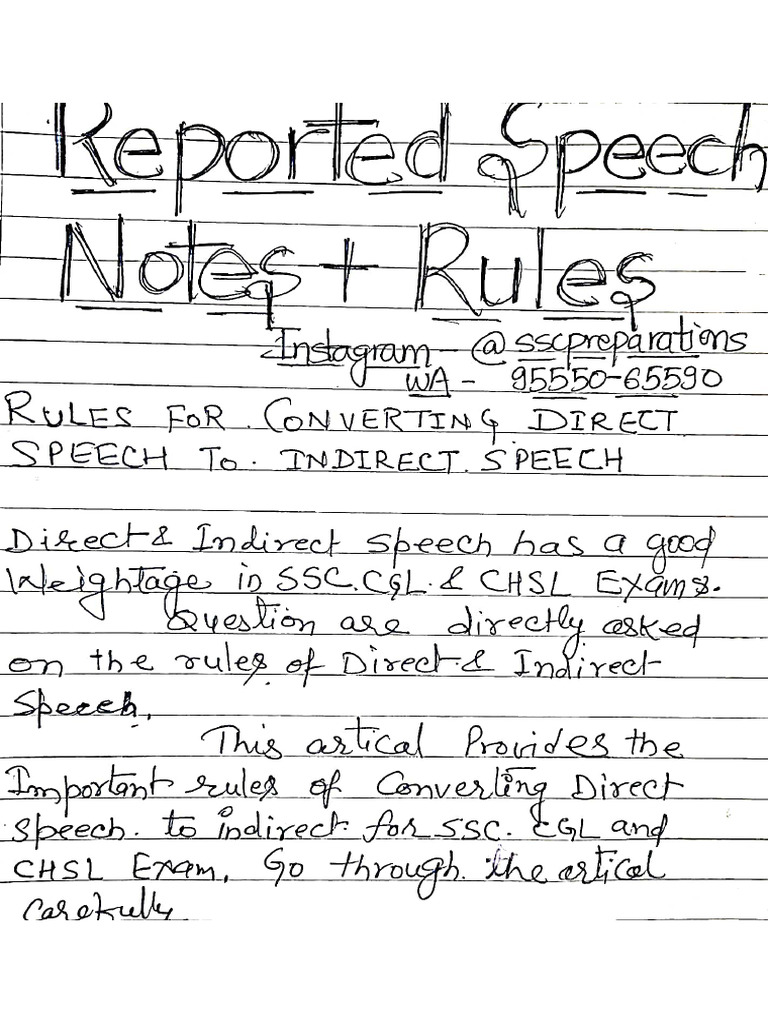 Reported Speech
Notes + Rules
Instagram - @sscpreparations
WA - 95550-65590
RULES FOR CONVERTING DIRECT
SPEECH TO INDIRECT SPEECH
Direct & Indirect speech has a good
Weightage in SSC. CGL & CHSL Exams.
Question are directly asked
on the rules of Direct & Indirect
Speech.
This artical Provides the
Important rules of Converting Direct
Speech. to indirect for SSC. CGL and
CHSL Exam. Go through the artical
carefully